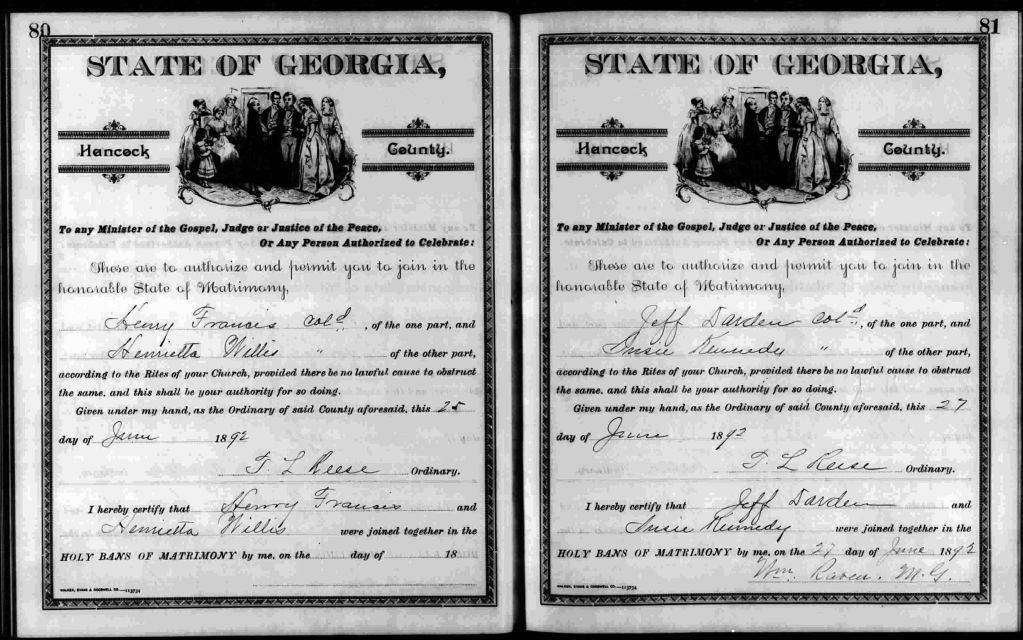 80
STATE OF GEORGIA,
Hancock County.
To any Minister of the Gospel, Judge or Justice of the Peace,
Or Any Person Authorized to Celebrate:
These are to authorize and permit you to join in the
honorable State of Matrimony,
Henry Francis Cold., of the one part, and
Henrietta Willis " of the other part,
according to the Rites of your Church, provided there be no lawful cause to obstruct
the same, and this shall be your authority for so doing.
Given under my hand, as the Ordinary of said County aforesaid, this 25
day of June 1892
T. L Reese Ordinary.
I hereby certify that Henry Francis and
Henrietta Willis were joined together in the
HOLY BANS OF MATRIMONY by me, on the day of 18
WALKER, EVANS & COGSWELL CO.—113734
81
STATE OF GEORGIA,
Hancock County.
To any Minister of the Gospel, Judge or Justice of the Peace,
Or Any Person Authorized to Celebrate:
These are to authorize and permit you to join in the
honorable State of Matrimony,
Jeff Darden Cold., of the one part, and
Susie Kennedy " of the other part,
according to the Rites of your Church, provided there be no lawful cause to obstruct
the same, and this shall be your authority for so doing.
Given under my hand, as the Ordinary of said County aforesaid, this 27
day of June 1892
T. L Reese Ordinary.
I hereby certify that Jeff Darden and
Susie Kennedy were joined together in the
HOLY BANS OF MATRIMONY by me, on the 27 day of June 1892
Wm. Raven. M.G.
WALKER, EVANS & COGSWELL CO.—113734